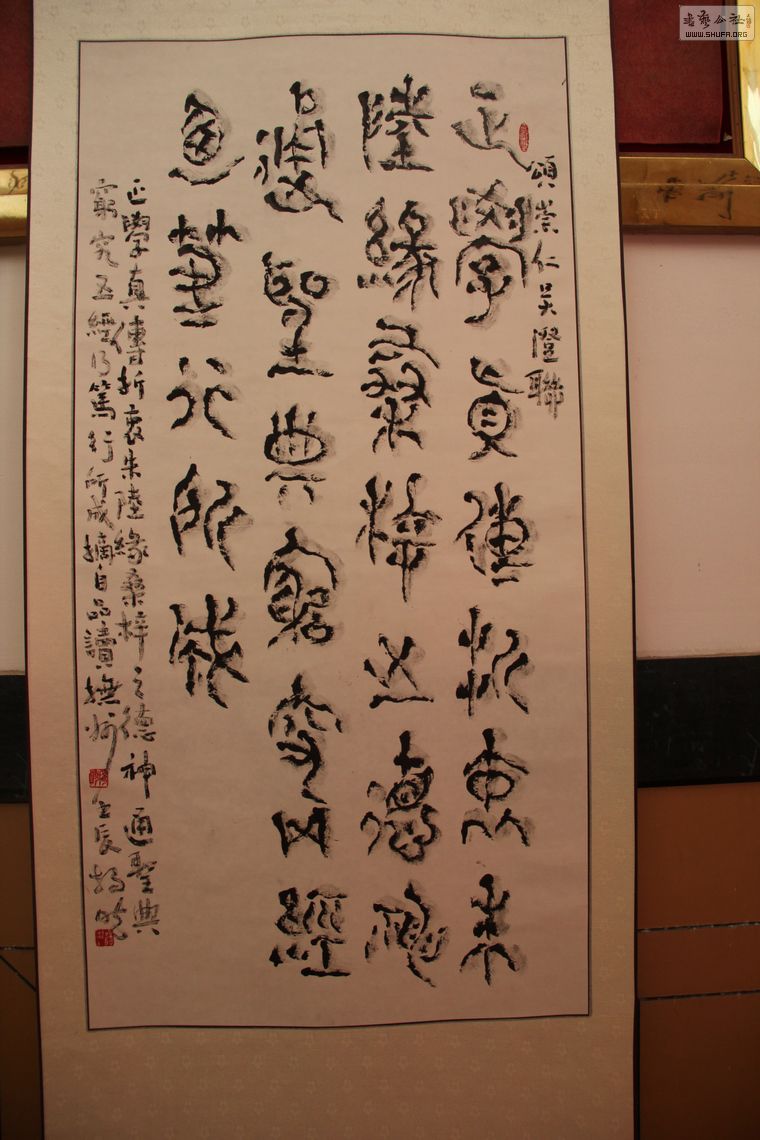 頌崇仁吴澄聯
正學真傳折衷朱
陸緣桑梓之德神
通聖典窮究五經
乃篤行所成
正學真傳折衷朱陸緣桑梓之德神通聖典
窮究五經乃篤行所成摘自品讀撫州
壬辰
書藝公社
WWW.SHUFA.ORG